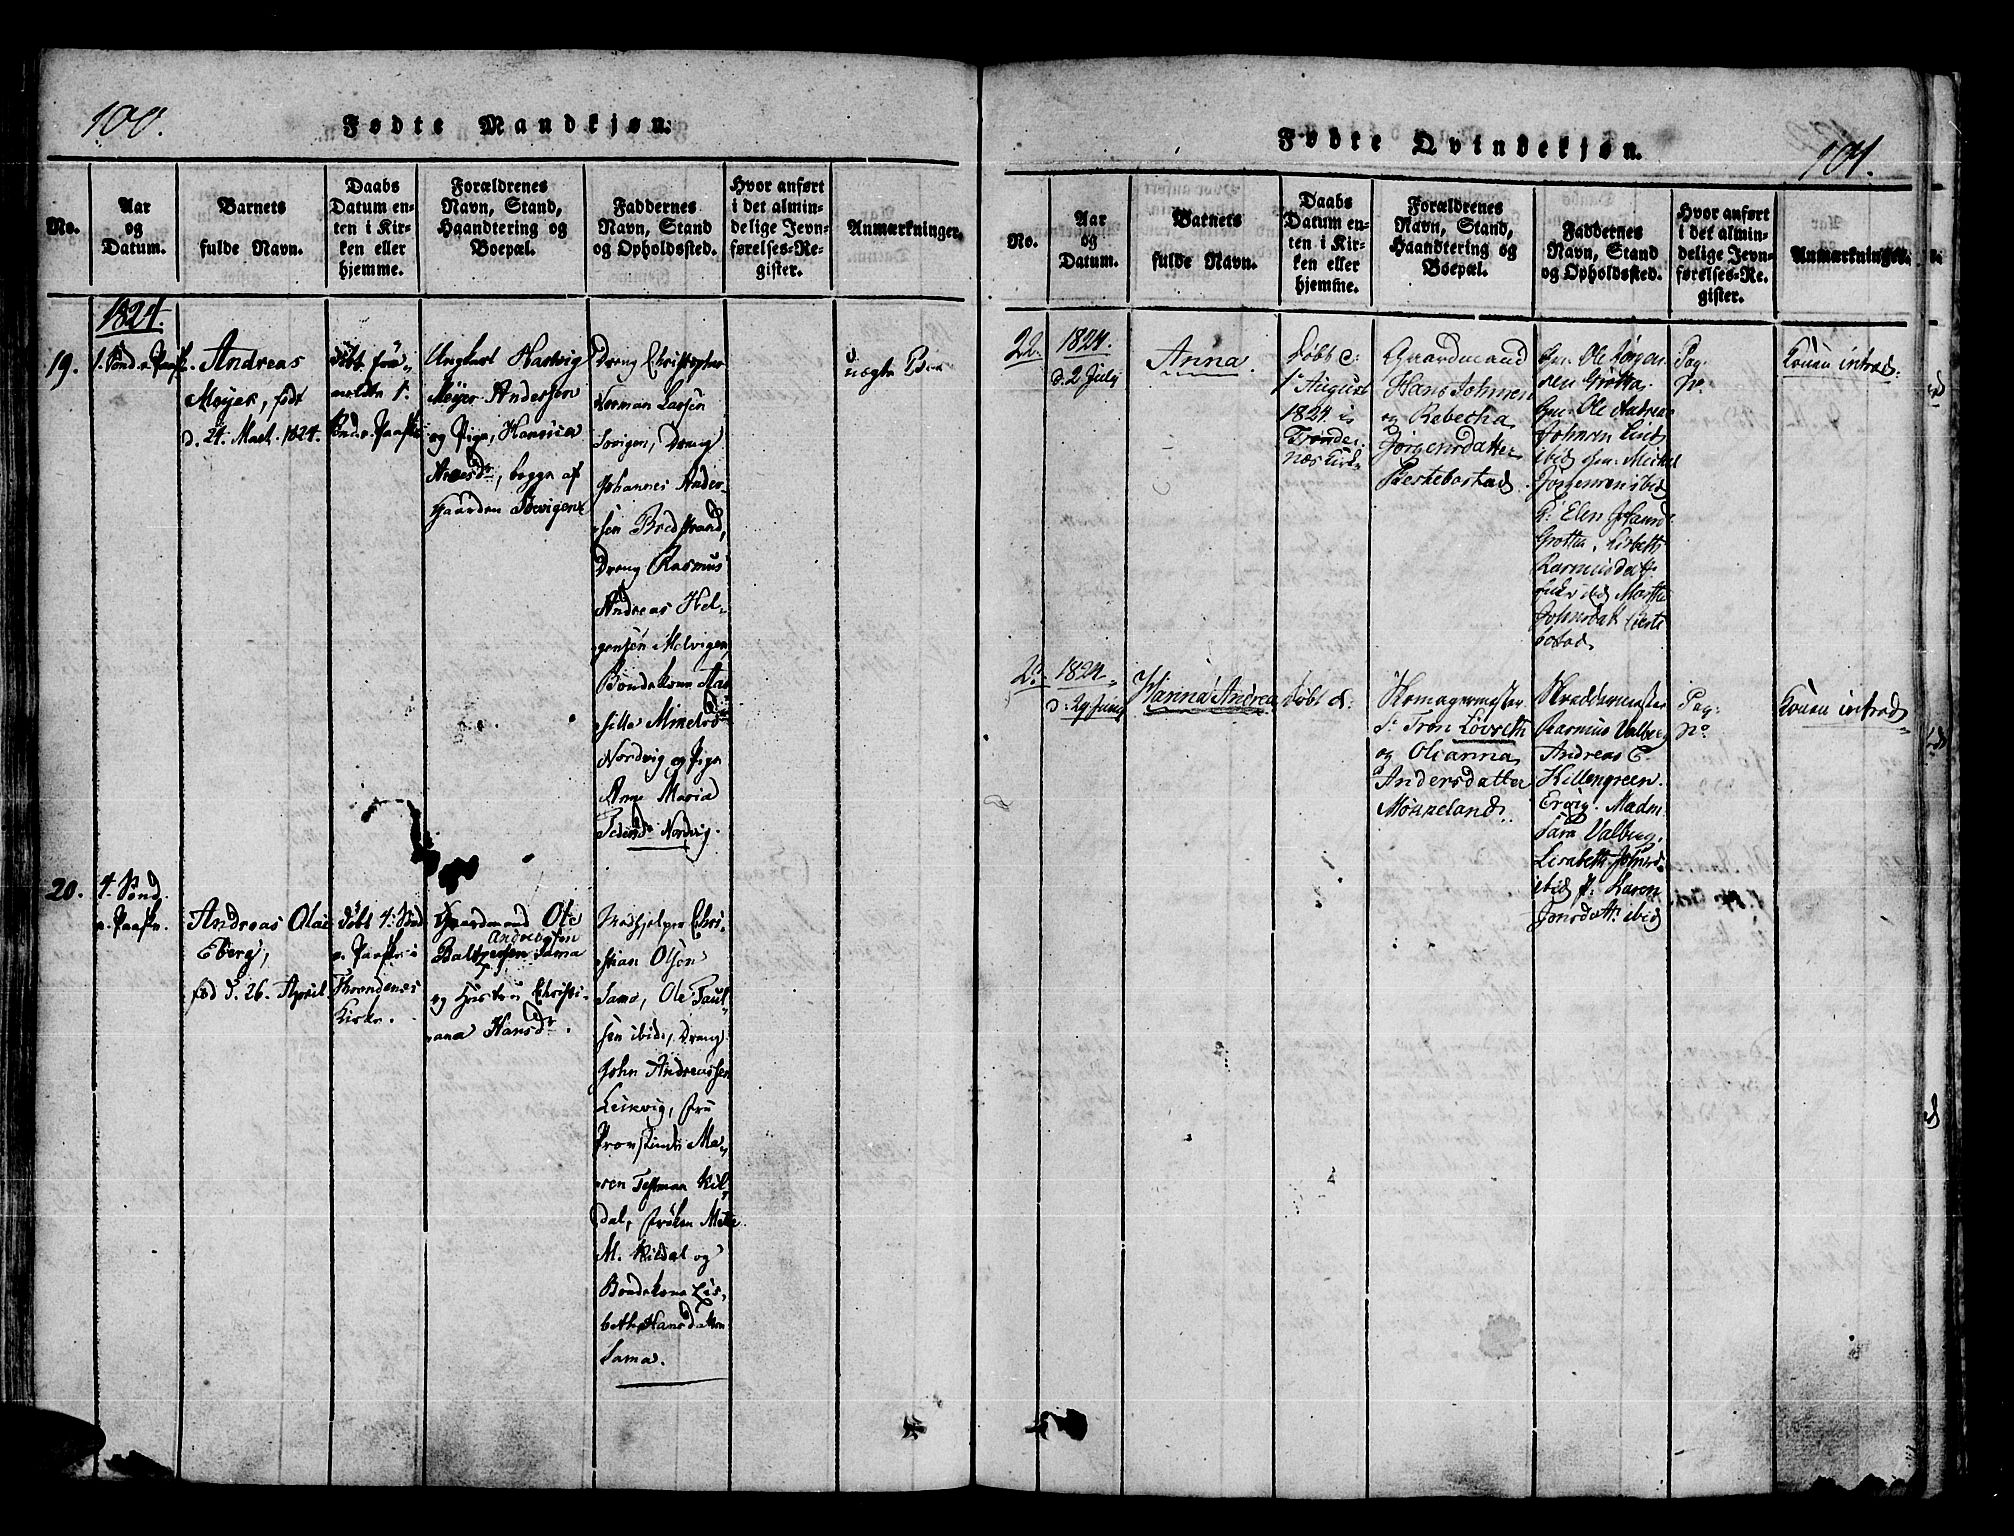 100.
Fødte Mandkjøn.
No.
Aar
og
Datum.
Barnets
fulde Navn.
Daabs
Datum en-
ten i Kir-
ken eller
hjemme.
Forældrenes
Navn, Stand,
Haandtering og
Boepæl.
Faddernes
Navn, Stand
og Opholdssted.
Hvor anført
i det almin-
delige Jevn-
førelses-Re-
gister.
Anmærkninger.
1824.
19.
1. Sønd. e. Paask.
Andreas
Meyer, født
d. 24. Mart. 1824.
døbt
1.
Sønd. e. Paaske
Ungkarl Hartvig
Meyer Andersen
og Pige, Hansina
begge af
Gaarden
Dreng Christopher
Norman Larsen
Dreng
Johannes Ander-
sen Bredstrand,
Dreng Rasmus
Andreas Hel-
gensen Melvigen,
Bondekone
Mikels
Nordvig og Pige
Anne Maria
Peders Nordvig.
uægte
20.
4. Sønd.
e. Paaske.
Andreas Olai
Eberg,
fød d. 26. April
døbt 4. Sønd
e. Paaske i
Throndenes
Kirke.
Gaardmand Ole
Andreasen
Baltzersen Sama
og Hustru Christi-
ana Hansd.
Madhjelper Chri-
stian Olsen
Sama, Ole Paul-
sen ibid, Dreng
John Andreassen
Leikvig, Fru
Ma-
ren Testman Kil-
dal, Frøken Mette
M. Kildal og
Bondekone Lis-
beth Hansdatter
Sama.
Fødte Qvindekjøn.
101.
No.
Aar
og
Datum.
Barnets
fulde Navn.
Daabs
Datum en-
ten i Kir-
ken eller
hjemme.
Forældrenes
Navn, Stand,
Haandtering og
Boepæl.
Faddernes
Navn, Stand
og Opholdssted.
Hvor anført
i det almin-
delige Jevn-
førelses-Re-
gister.
Anmærkninger.
22.
1824.
d. 2 July
Anna.
Døbt d:
1ste August
1824 i
Tronde-
næs Kirke
Gaardmand
Hans Johnsen
og Rebecha
Jørgensdatter
Berkebostad.
Ole Jørgen-
sen Grøtta.
Ole Andreas
Johnsen
ibid Mickel
Jørgensen ibid
P: Elen
Grøtta, Lisbeth
Rasmusdatt:
ibid Marthe
Johnsdat
bostad
Pag:
No.
Konen introd:
23.
1824.
d: 29 Juny
Hanna Andrea
Døbt d:
Komagermester
Sr Tron Løvseth
og Olianna
Andersdatter
Mørkeland.
Skreddermester
Rasmus Valberg
Andreas C.
Killengreen
Madm
Sara Valberg,
Lisabeth Johnsd
ibid P: Karen
Jensdatt: ibid
Pag:
No.
Konen introd